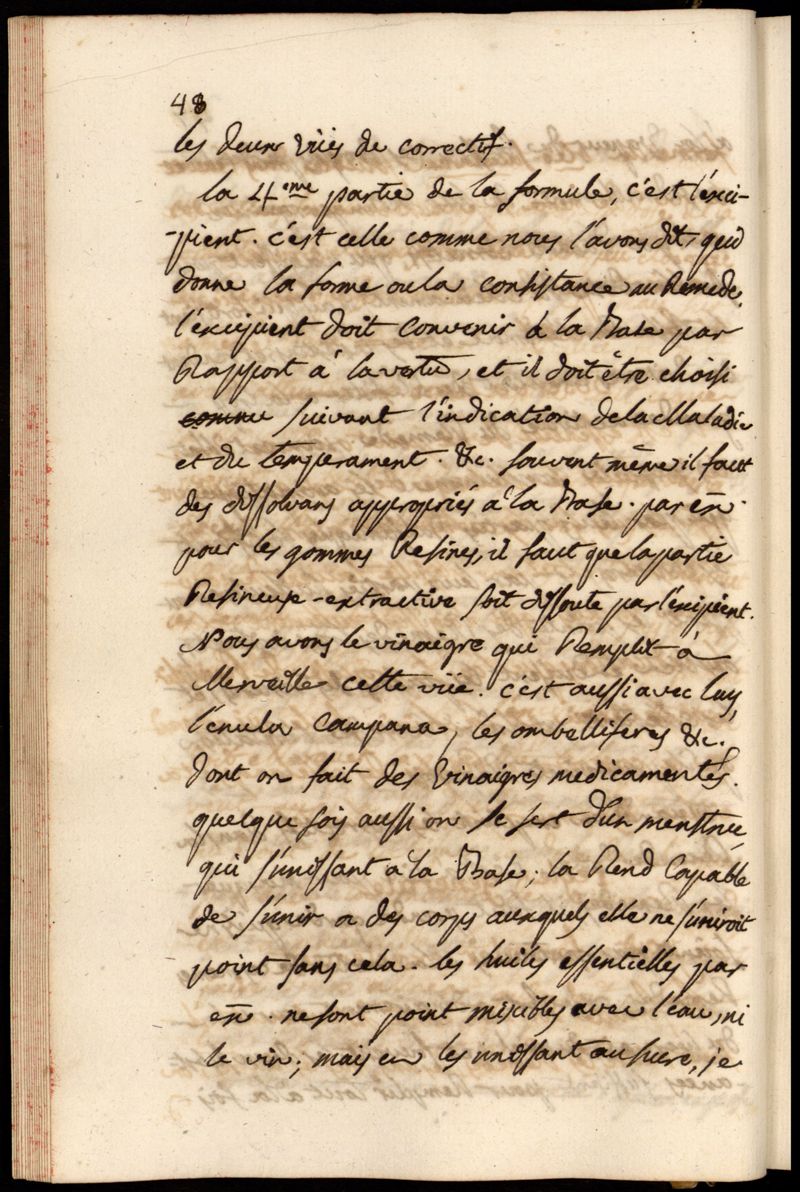 48
les deux vües de correctif.
la 4eme partie de la formule, c'est l'exci-
-pient. c'est celle comme nous l'avons dit, qui
donne la forme ou la consistance au Remede.
l'excipient doit convenir à la Base par
Rapport à la vertu, et il doit être choisi
comme suivant l'indication de la Maladie
et du temperament. &c. souvent même il faut
des dissolvans appropriés à la Base. par ex.
pour les gommes Resines, il faut que la partie
Resineuse-extractive soit dissoute par l'excipient.
Nous avons le vinaigre qui Remplit à
Merveille cette vüe. c'est aussi avec luy,
l'enula Campana, les ombelliferes &c.
dont on fait des Vinaigres medicamentés.
quelque fois aussi on se sert d'un menstrue
qui s'unissant à la Base, la Rend Capable
de s'unir a des corps auxquels elle ne s'uniroit
point sans cela. les huiles essentielles par
ex. ne sont point miscibles avec l'eau, ni
le vin; mais en les unissant au sucre, je